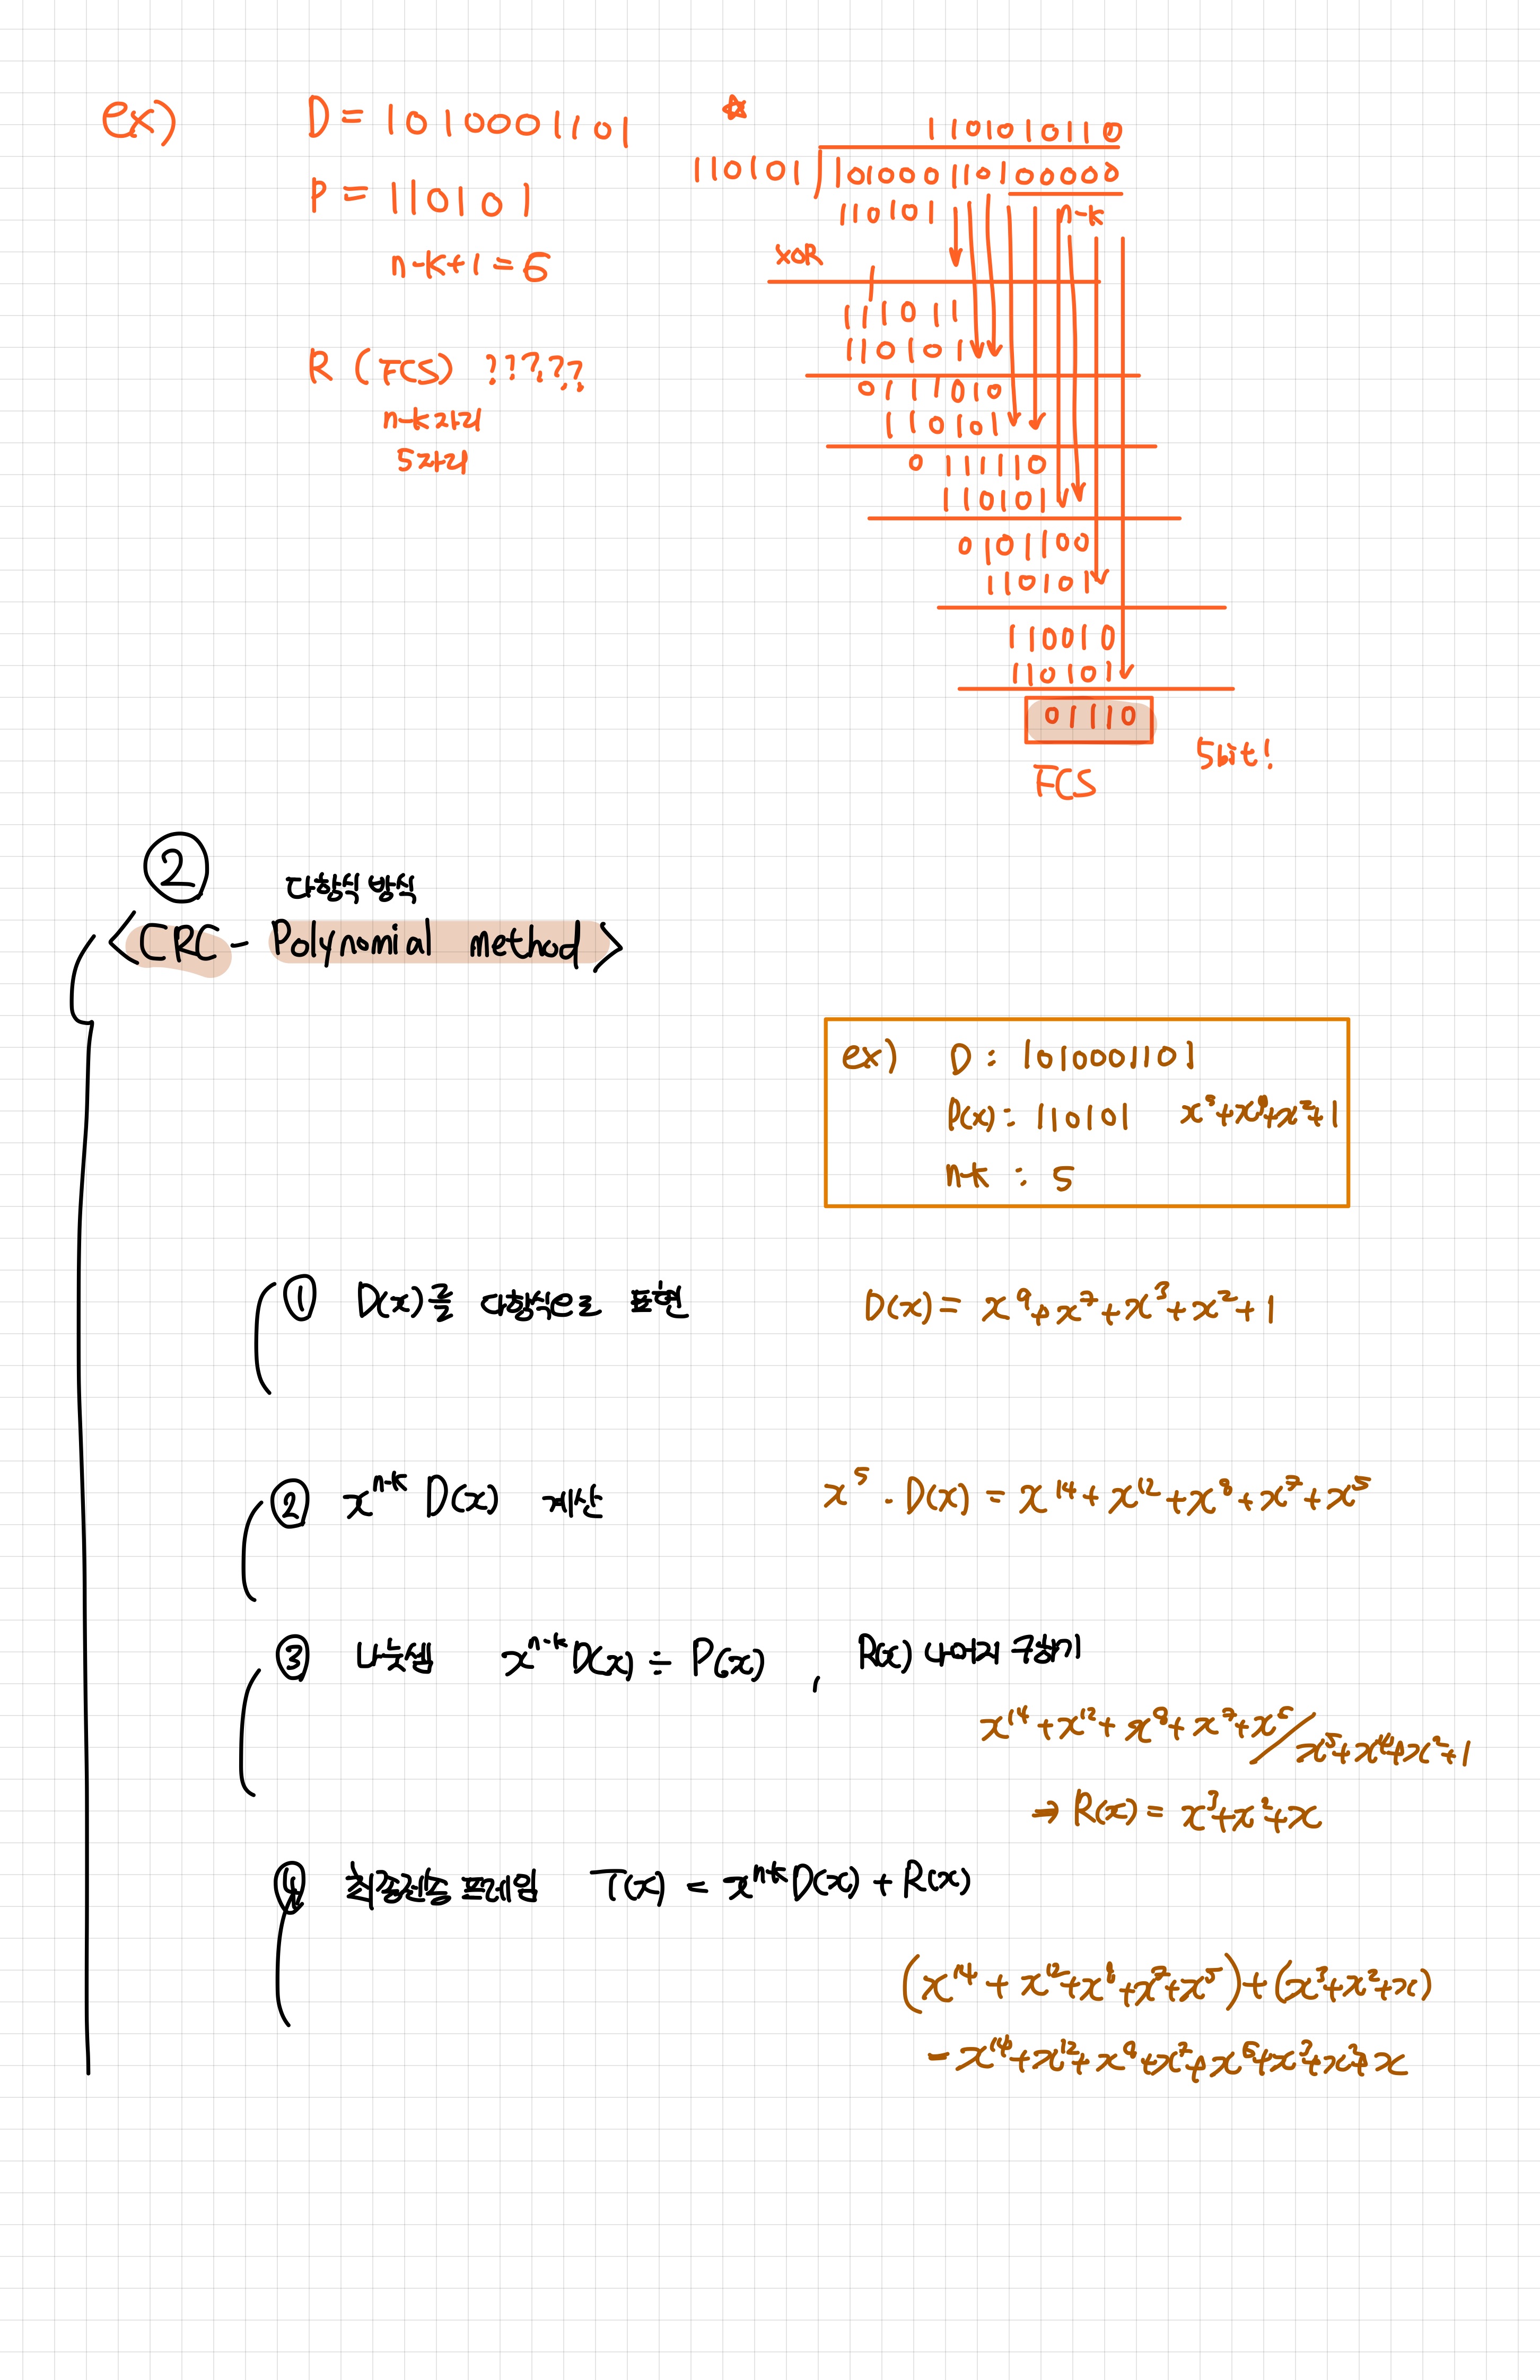 ex)
D = 1010001101
P = 110101
n-k+1 = 6
R (FCS) ?????
n-k자리
5자리
☆
1101010110
110101)101000110100000
110101
n-k
XOR
111011
110101
0111010
110101
0 111110
110101
0101100
110101
110010
110101
01110
5bit!
FCS
②
다항식 방식
<CRC - Polynomial method>
ex) D : 1010001101
P(x) : 110101 x⁵+x⁴+x²+1
n-k : 5
① D(x)를 다항식으로 표현
D(x) = x⁹+x⁷+x³+x²+1
② xⁿ⁻ᵏ D(x) 계산
x⁵ · D(x) = x¹⁴+x¹²+x⁸+x⁷+x⁵
③ 나눗셈 xⁿ⁻ᵏD(x) ÷ P(x) , R(x) 나머지 구하기
x¹⁴+x¹²+x⁸+x⁷+x⁵/x⁵+x⁴+x²+1
→ R(x) = x³+x²+x
④ 최종전송 프레임 T(x) = xⁿ⁻ᵏD(x) + R(x)
(x¹⁴+x¹²+x⁸+x⁷+x⁵)+(x³+x²+x)
= x¹⁴+x¹²+x⁸+x⁷+x⁵+x³+x²+x